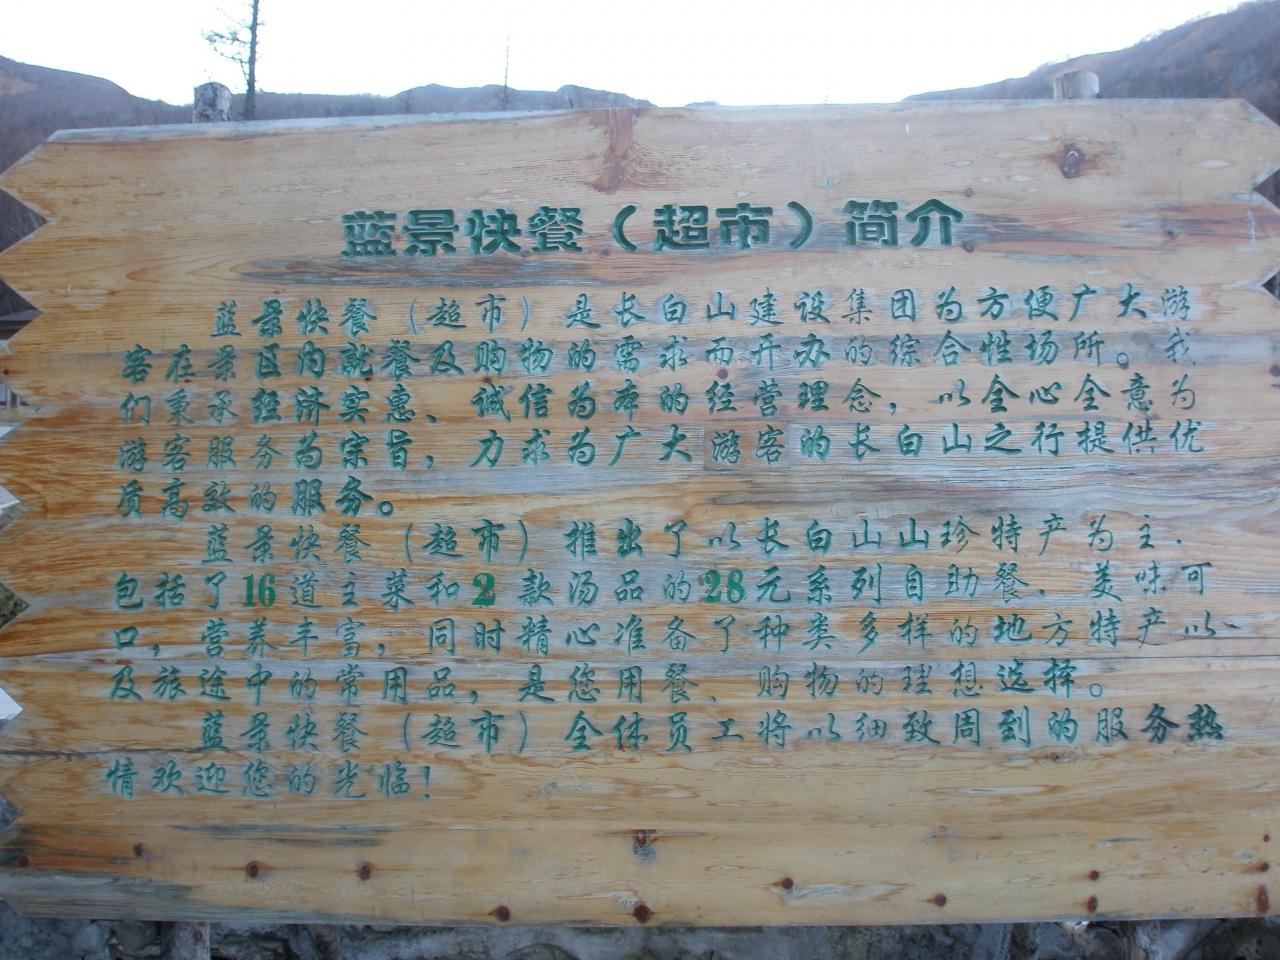 蓝景快餐（超市）简介
蓝景快餐（超市）是长白山建设集团为方便广大游
客在景区内就餐及购物的需求而开办的综合性场所。我
们秉承经济实惠、诚信为本的经营理念，以全心全意为
游客服务为宗旨，力求为广大游客的长白山之行提供优
质高效的服务。
蓝景快餐（超市）推出了以长白山山珍特产为主.
包括了16道主菜和2款汤品的28元系列自助餐．美味可
口，营养丰富，同时精心准备了种类多样的地方特产以
及旅途中的常用品，是您用餐、购物的理想选择。
蓝景快餐（超市）全体员工将以细致周到的服务热
情欢迎您的光临！